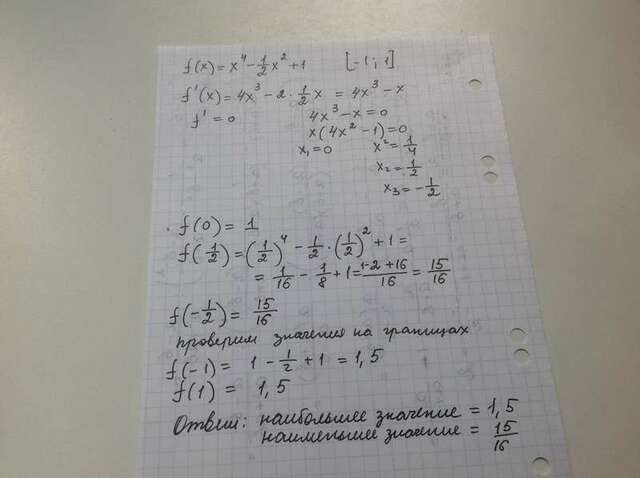 f(x) = x⁴ - 1/2 x² + 1 [-1; 1]
f'(x) = 4x³ - 2 · 1/2 x = 4x³ - x
f' = 0 4x³ - x = 0
x(4x² - 1) = 0
x₁ = 0 x² = 1/4
x₂ = 1/2
x₃ = -1/2
f(0) = 1
f(1/2) = (1/2)⁴ - 1/2 · (1/2)² + 1 =
= 1/16 - 1/8 + 1 = 1-2+16/16 = 15/16
f(-1/2) = 15/16
проверим значения на границах
f(-1) = 1 - 1/2 + 1 = 1,5
f(1) = 1,5
Ответ: наибольшее значение = 1,5
наименьшее значение = 15/16